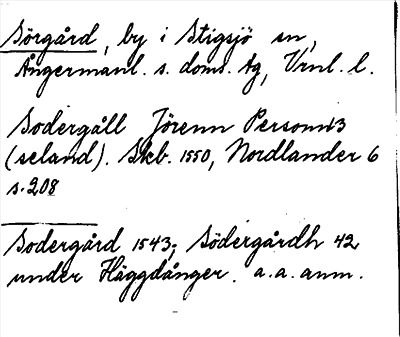 Sörgård, by i Stigsjö sn,
Ångermanl. s. doms. Ag, Vrnl. l.
Sodergåll Jörenn Personn 13
(seland). Skb. 1550, Nordlander 6
s. 208
Sodergård 1543; Södergårdh 42
under Häggdånger. a.a. anm.